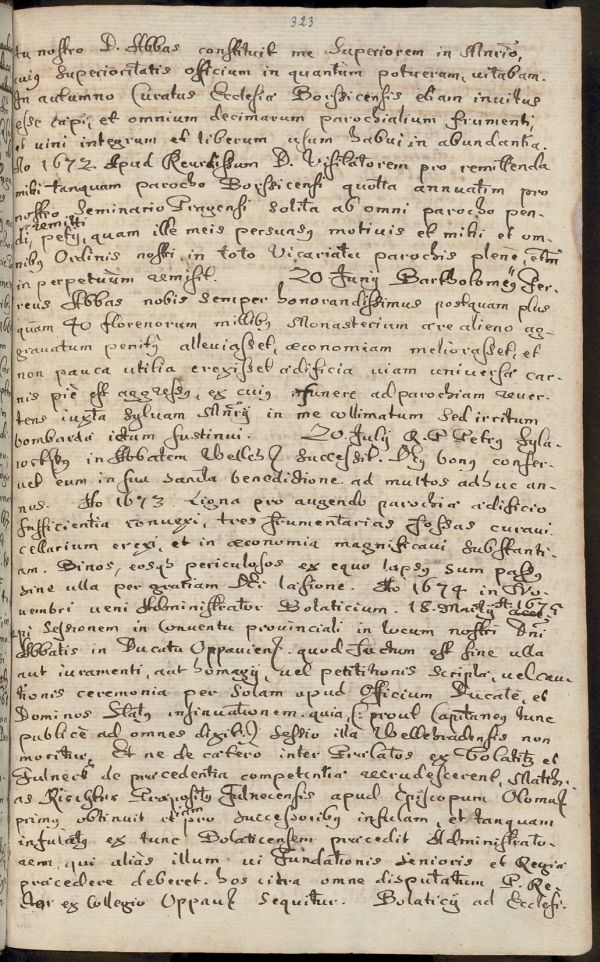 323
tu nostro D. Abbas constituit me Superiorem in
cuius Superioritatis officium in quantum potueram, vitabam.
In autumno Curatus Ecclesiæ Borssicensis etiam invitus
esse cæpi, et omnium decimarum parochialium frumenti,
et vini integrum et liberum usum habui in abundantia.
Ao 1672 Apud Reverendissum D. Visitatorem pro remittenda
mihi tanquam parocho Borssicensi quotta annuatim pro
nostro Seminario Pragensi solita ab omni parocho pen-
di, remitti petii, quam ille meis persuasus motivis et mihi et om-
nibus Ordinis nostri in toto Vicariatu parochis plene, etiam
in perpetuum remisit. 20 Junij Bartholomeus Fer-
reus Abbas nobis semper honorandissimus postquam plus
quàm 40 florenorum millibus Monasterium ære alieno ag-
gravatum penitus alleviasset, œconomiam meliorasset, et
non pauca utilia erexisset ædificia viam universæ car-
nis pie est aggressus, ex cuius funere ad parochiam rever-
tens iuxta sylvam in me collimatum sed irritum
bombardæ ictum sustinui. 20. Julij R. P. Petrus Syla-
in Abbatem successit. Deus bonus conser-
vet eum in sua sancta benedictione ad multos adhuc an-
nos. Ao 1673 Ligna pro augendo parochiæ ædificio
sufficientia convexi, tres frumentarias fossas curavi
cellarium erexi, et in œconomia magnificavi substanti-
am. Binos, eosque periculosos ex equo lapsus sum passus
sine ulla per gratiam Dei læsione. Ao 1674 in No-
vembri veni Administrator Bolaticium. 18. Martij Ao 1675 acce-
pi Sessionem in Conventu provinciali in locum nostri Dni
Abbatis in Ducatu Oppaviensi. quod factum est sine ulla
aut iuramenti, aut homagij, vel petititionis scripta, vel cau-
tionis ceremonia per solam apud Officium Ducale, et
Dominos Status insinuationem. quia, (: prout Capitaneus tunc
publicè ad omnes dixit :) Sessio illa Wellehradensis non
moritur. Et ne de cætero inter Prælatos ex Bolatitz et
Fulnect de præcedentia competentia recrudescerent, Mathi-
as Præpositus Fulnocensis apud Episcopum Olomuc
primus obtinuit et pro successoribus infulam, et tanquam
infulatus ex tunc Bolaticensem præcedit Administrato-
rem, qui aliàs illum vi fundationis senioris et Regiæ
præcedere deberet. hos citra omne disputatum P. Re-
ctor ex Collegio Oppav sequitur. Bolaticij ad Ecclesi-